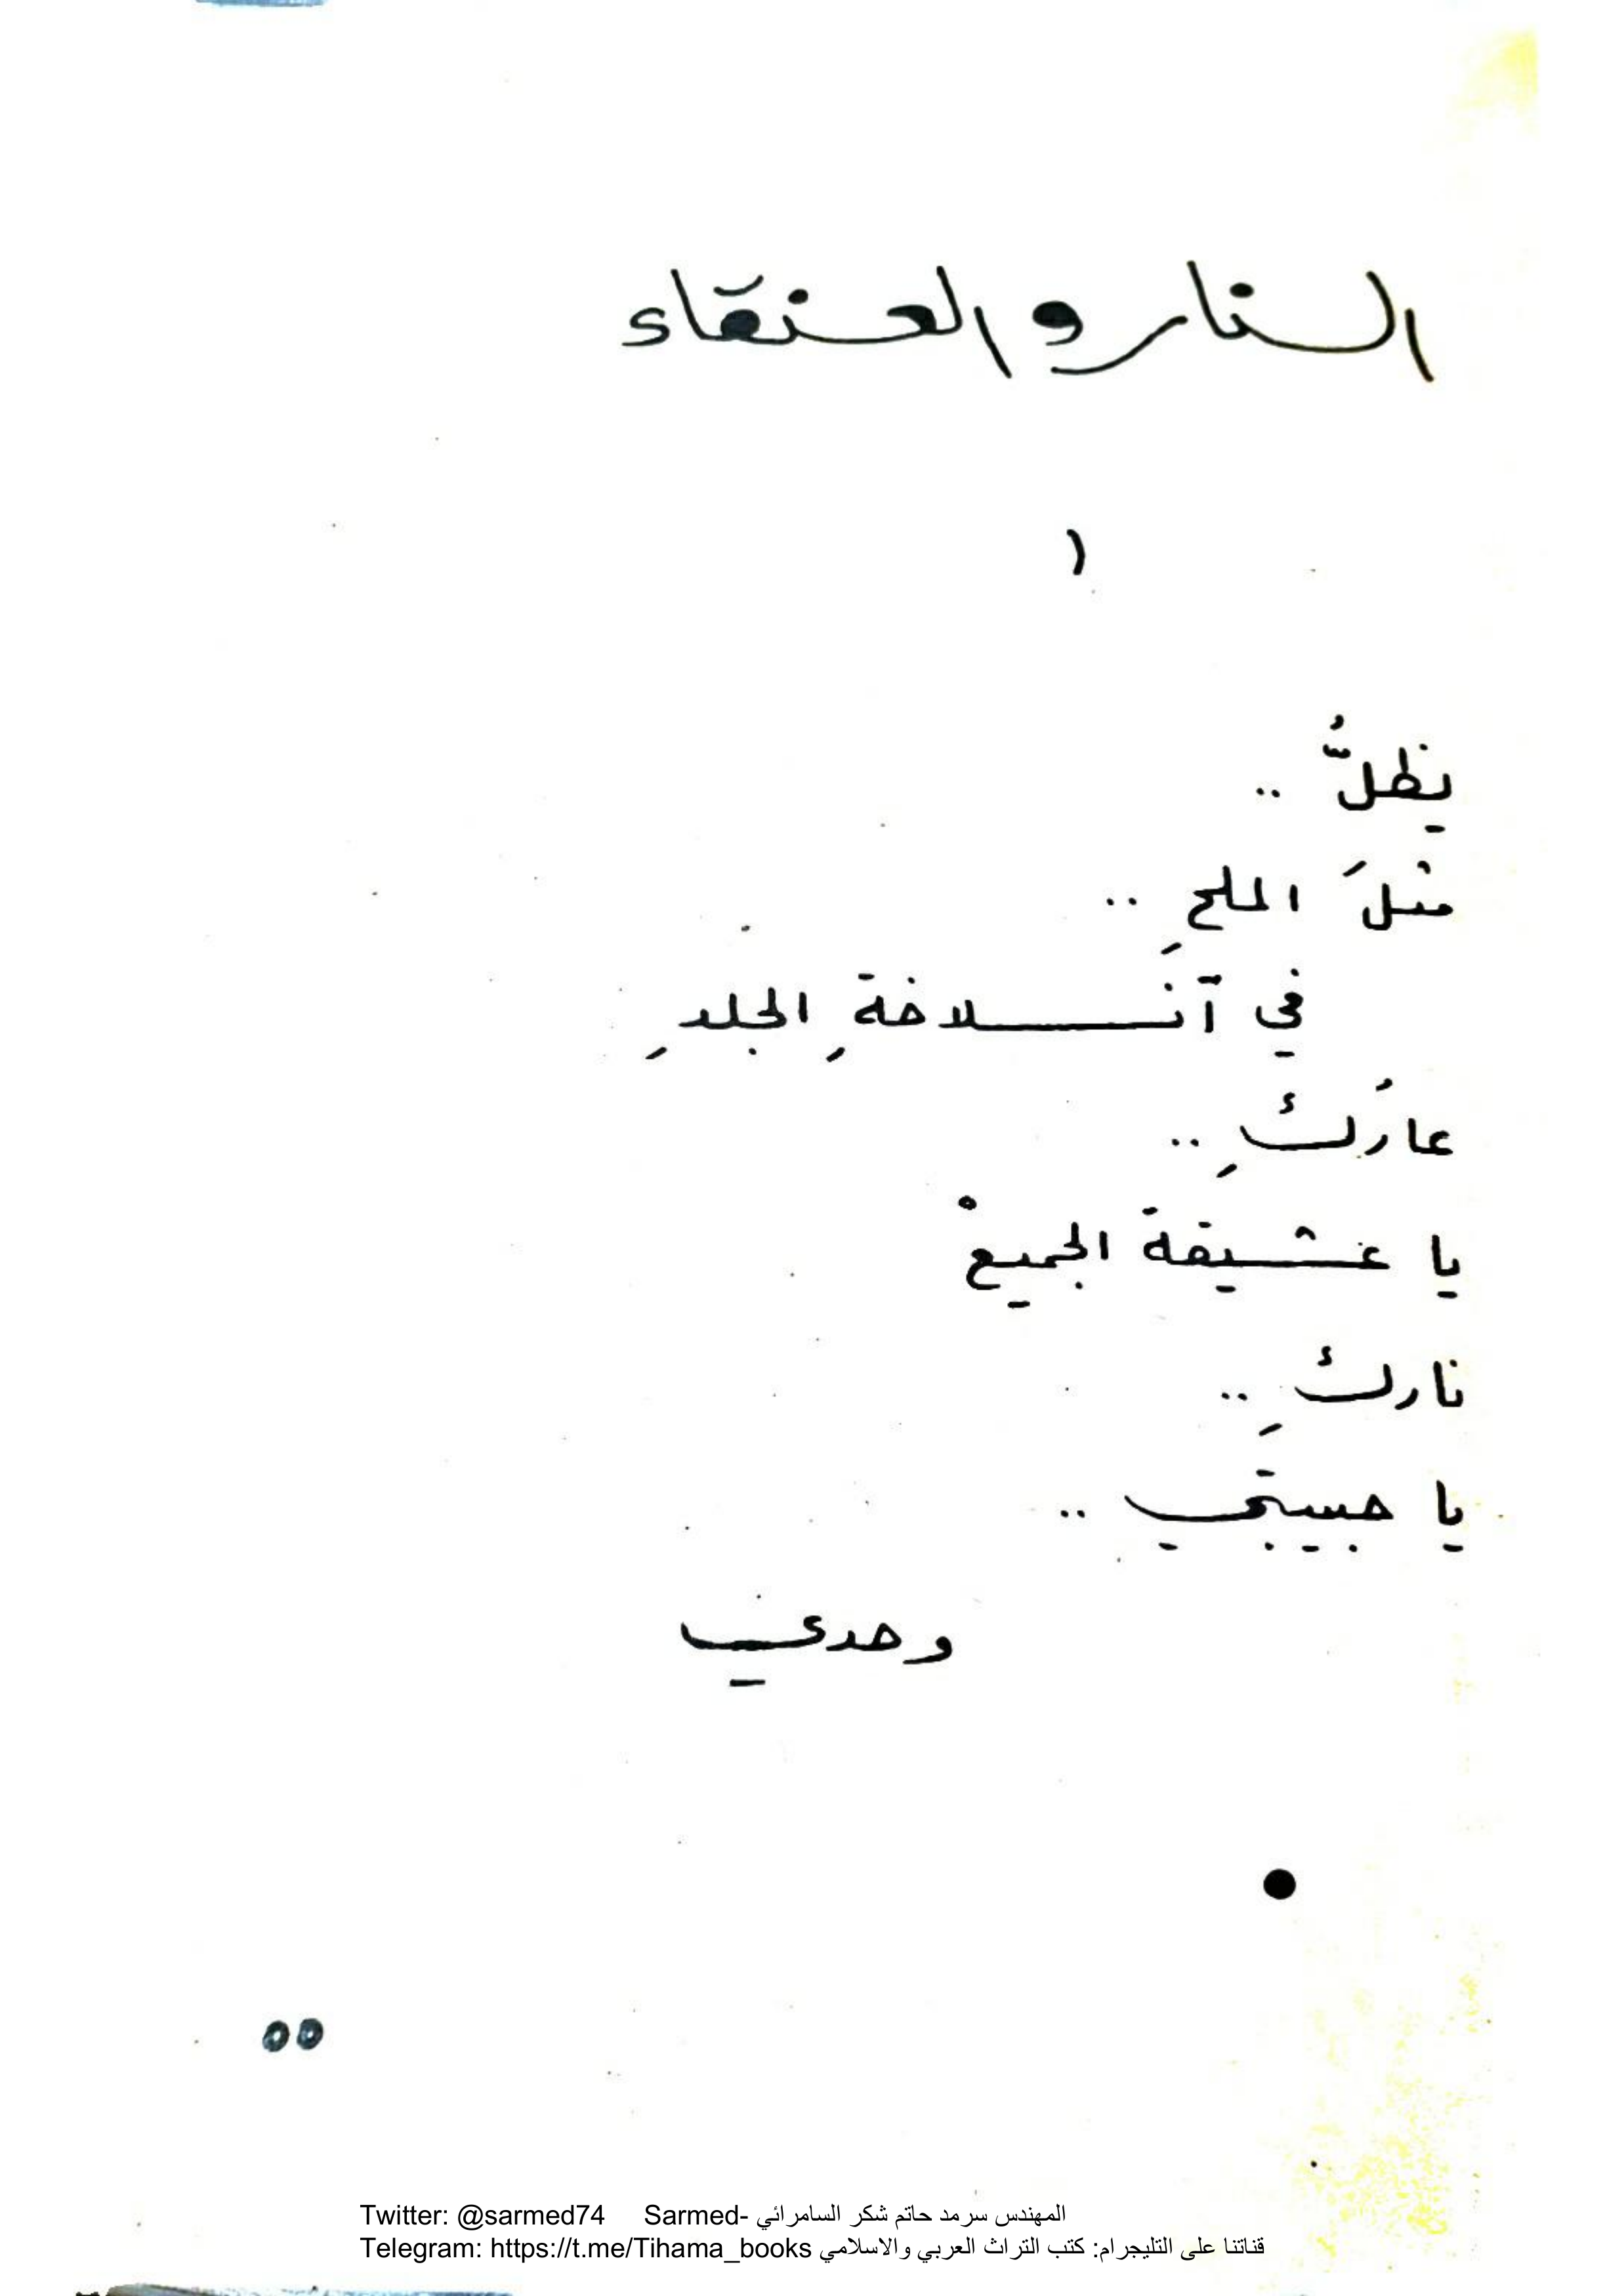 النار والعنقاء
١
يظلُّ ..
مثلَ الملحِ ..
في آنسلاخةِ الجلدِ
عارُكِ ..
يا عشيقةَ الجميعْ
ناركِ ..
يا حبيبتي ..
وحدي
٥٥
Twitter: @sarmed74 Sarmed- المهندس سرمد حاتم شكر السامرائي
Telegram: https://t.me/Tihama_books قناتنا على التليجرام: كتب التراث العربي والاسلامي